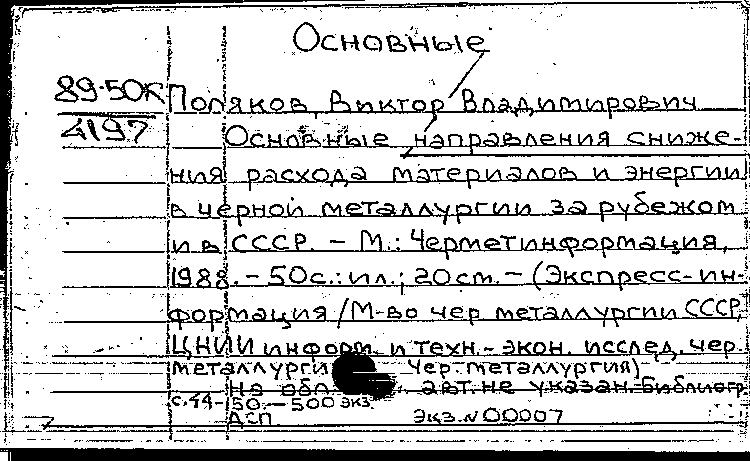 Основные
89-50К Поляков, Виктор Владимирович
4197 Основные направления сниже-
ния расхода материалов и энергии
в черной металлургии за рубежом
и в СССР. – М.: Черметинформация,
1988. – 50с.: ил.; 20см. – (Экспресс-ин-
формация / М-во чер металлургии СССР,
ЦНИИ информ. и техн.-экон. исслед. чер.
металлурги Чер. металлургия)
На обл авт. не указан. Библиогр.
с. 44-50. – 500 экз.
ДСП. Экз. N 00007